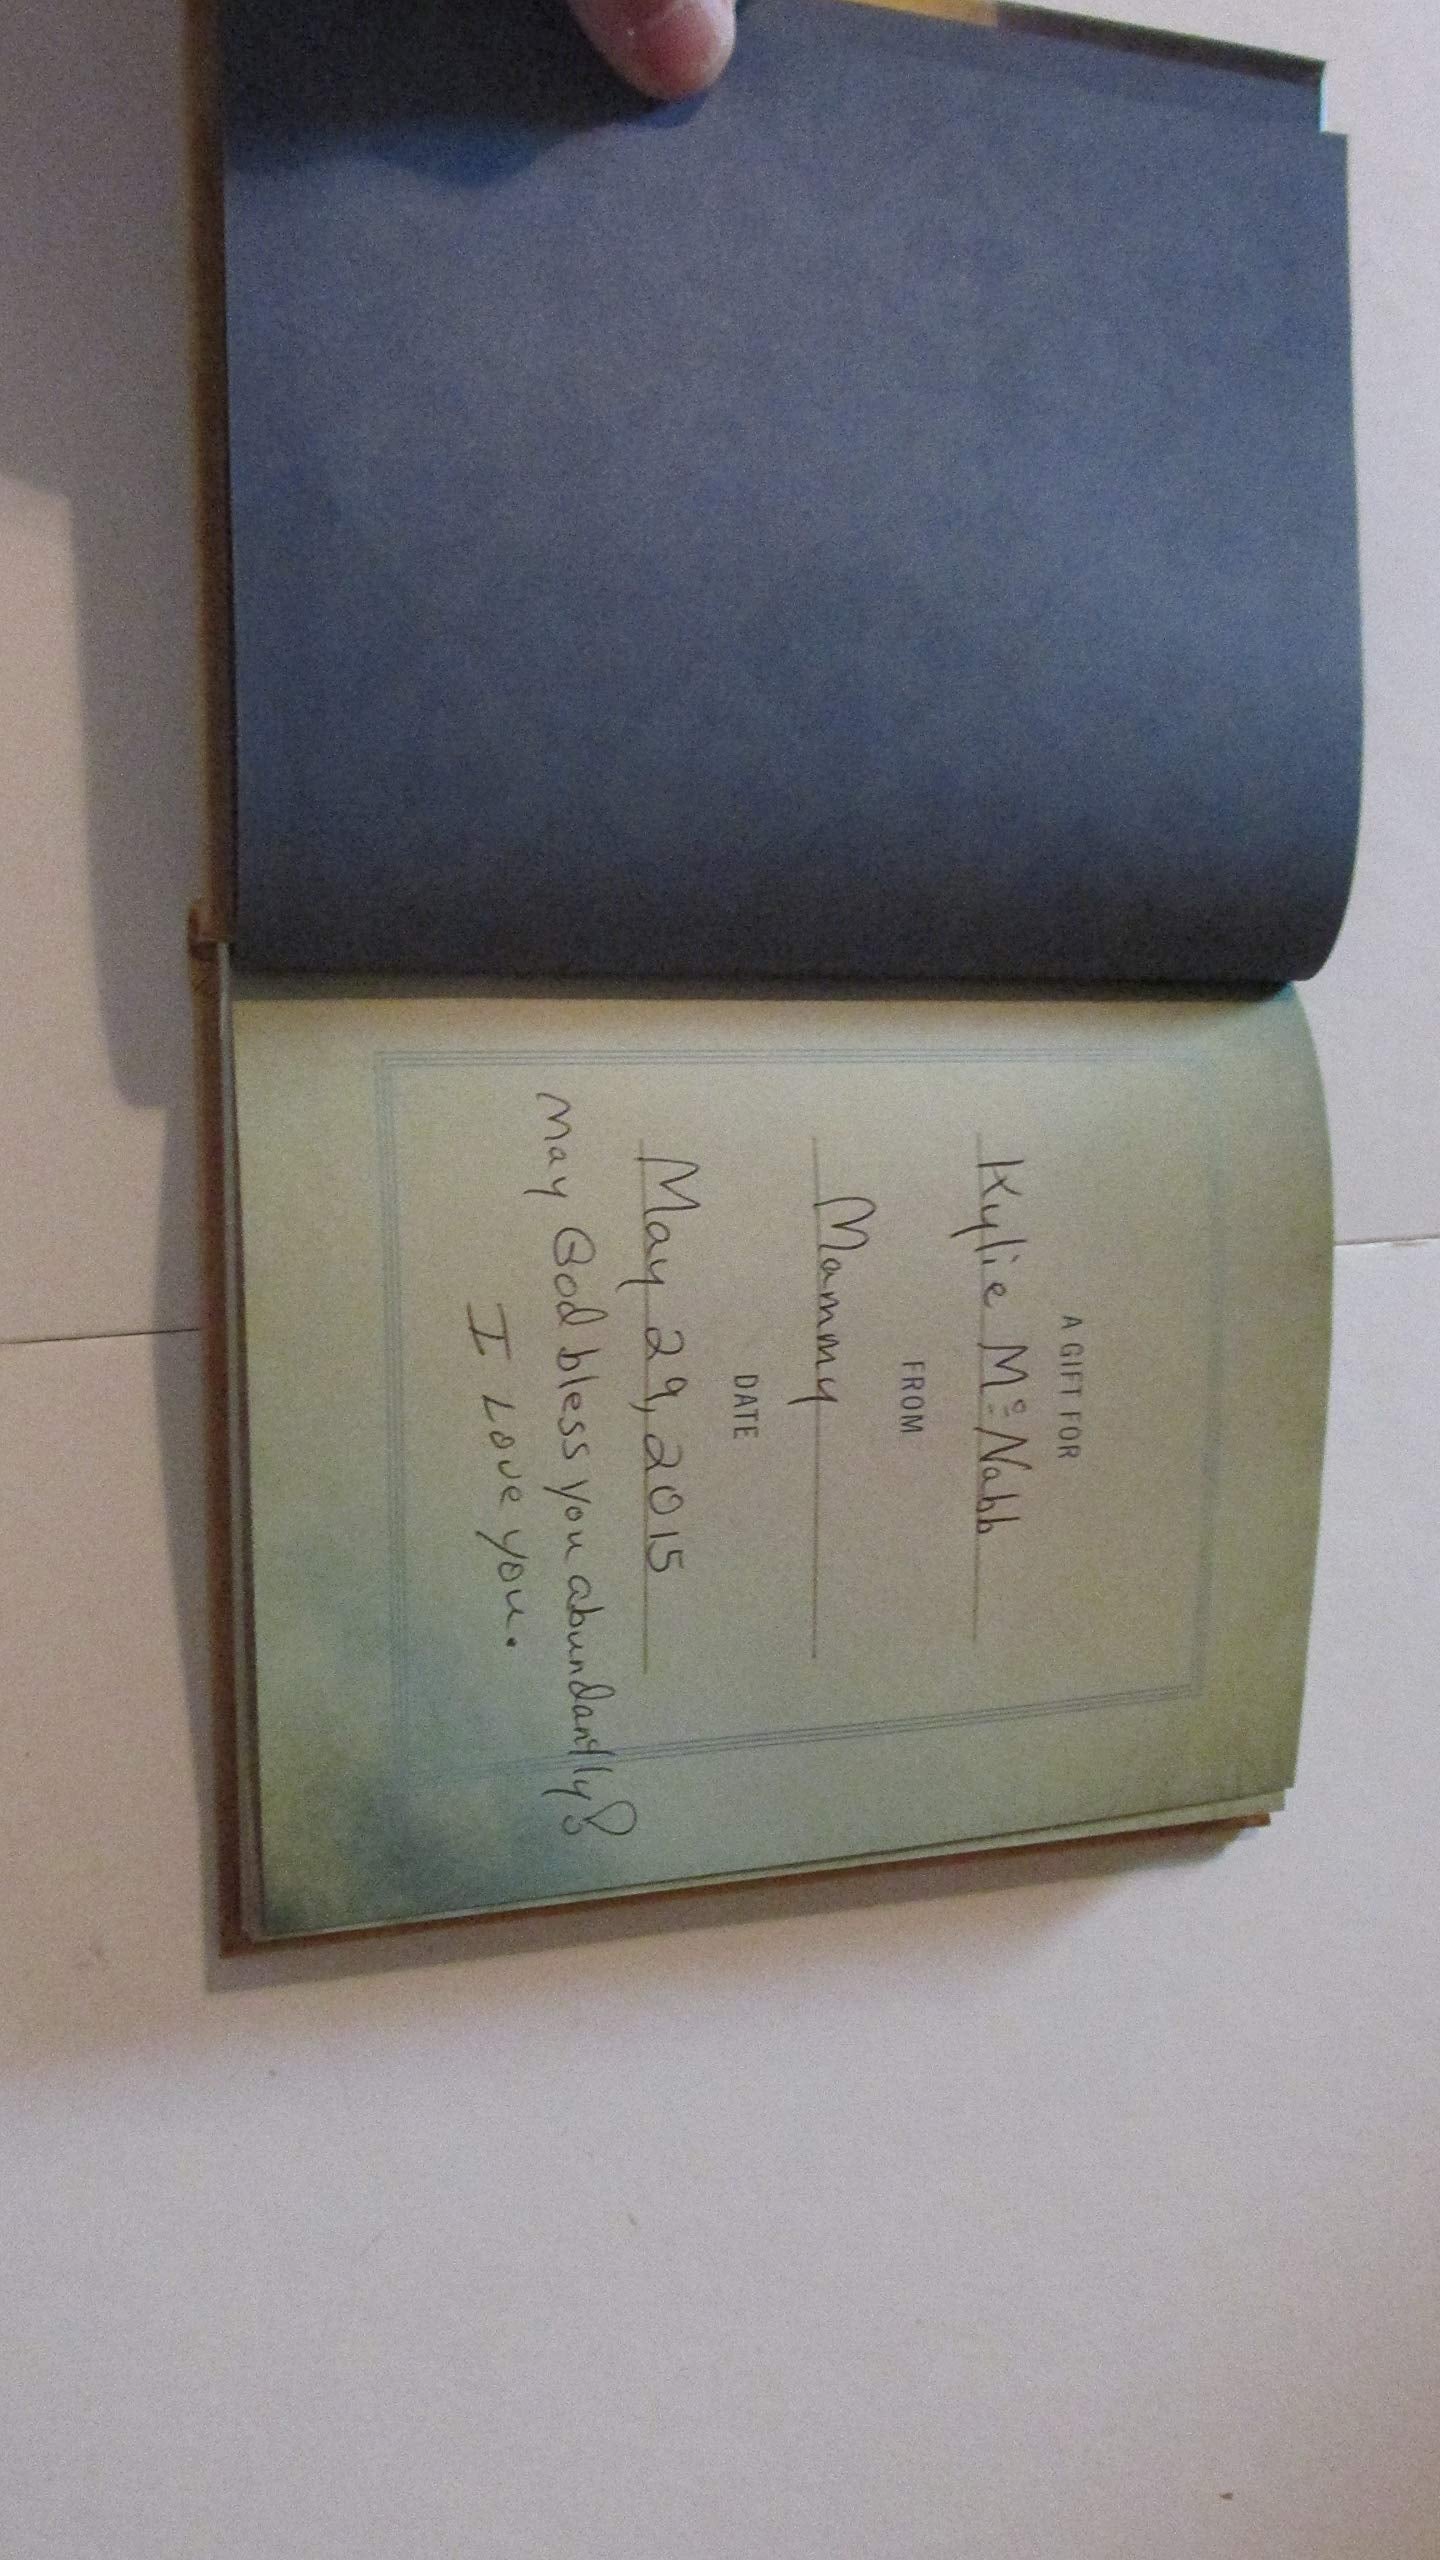 A GIFT FOR
Kylie McNabb
FROM
Mammy
DATE
May 29, 2015
May God bless you abundantly!
I Love you.